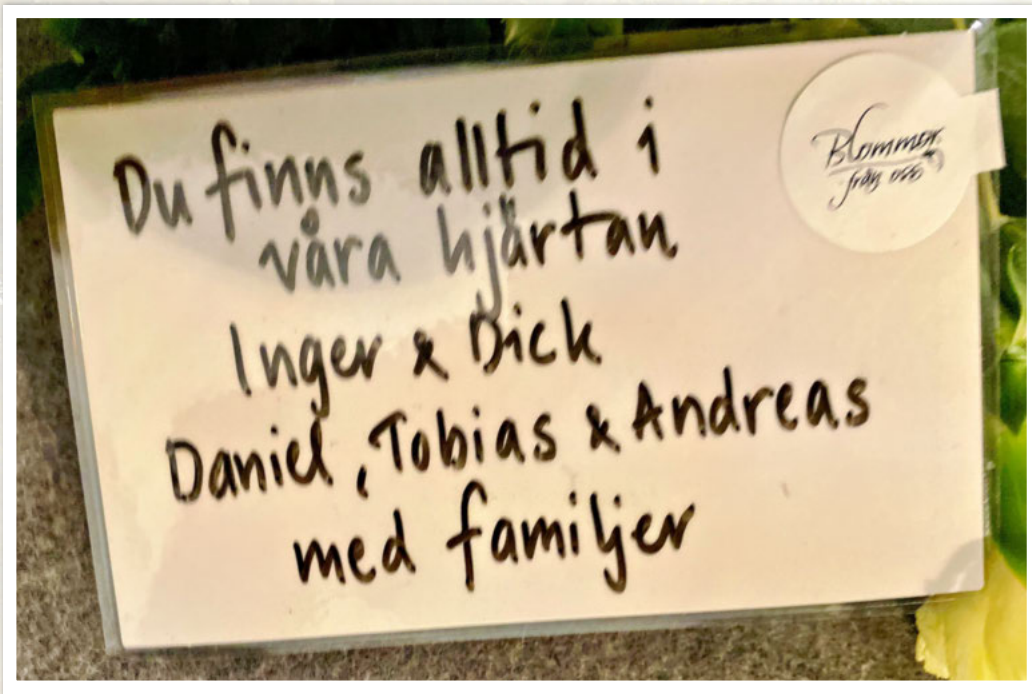 Du finns alltid i
våra hjärtan
Inger & Dick
Daniel, Tobias & Andreas
med familjer
Blommor
från oss